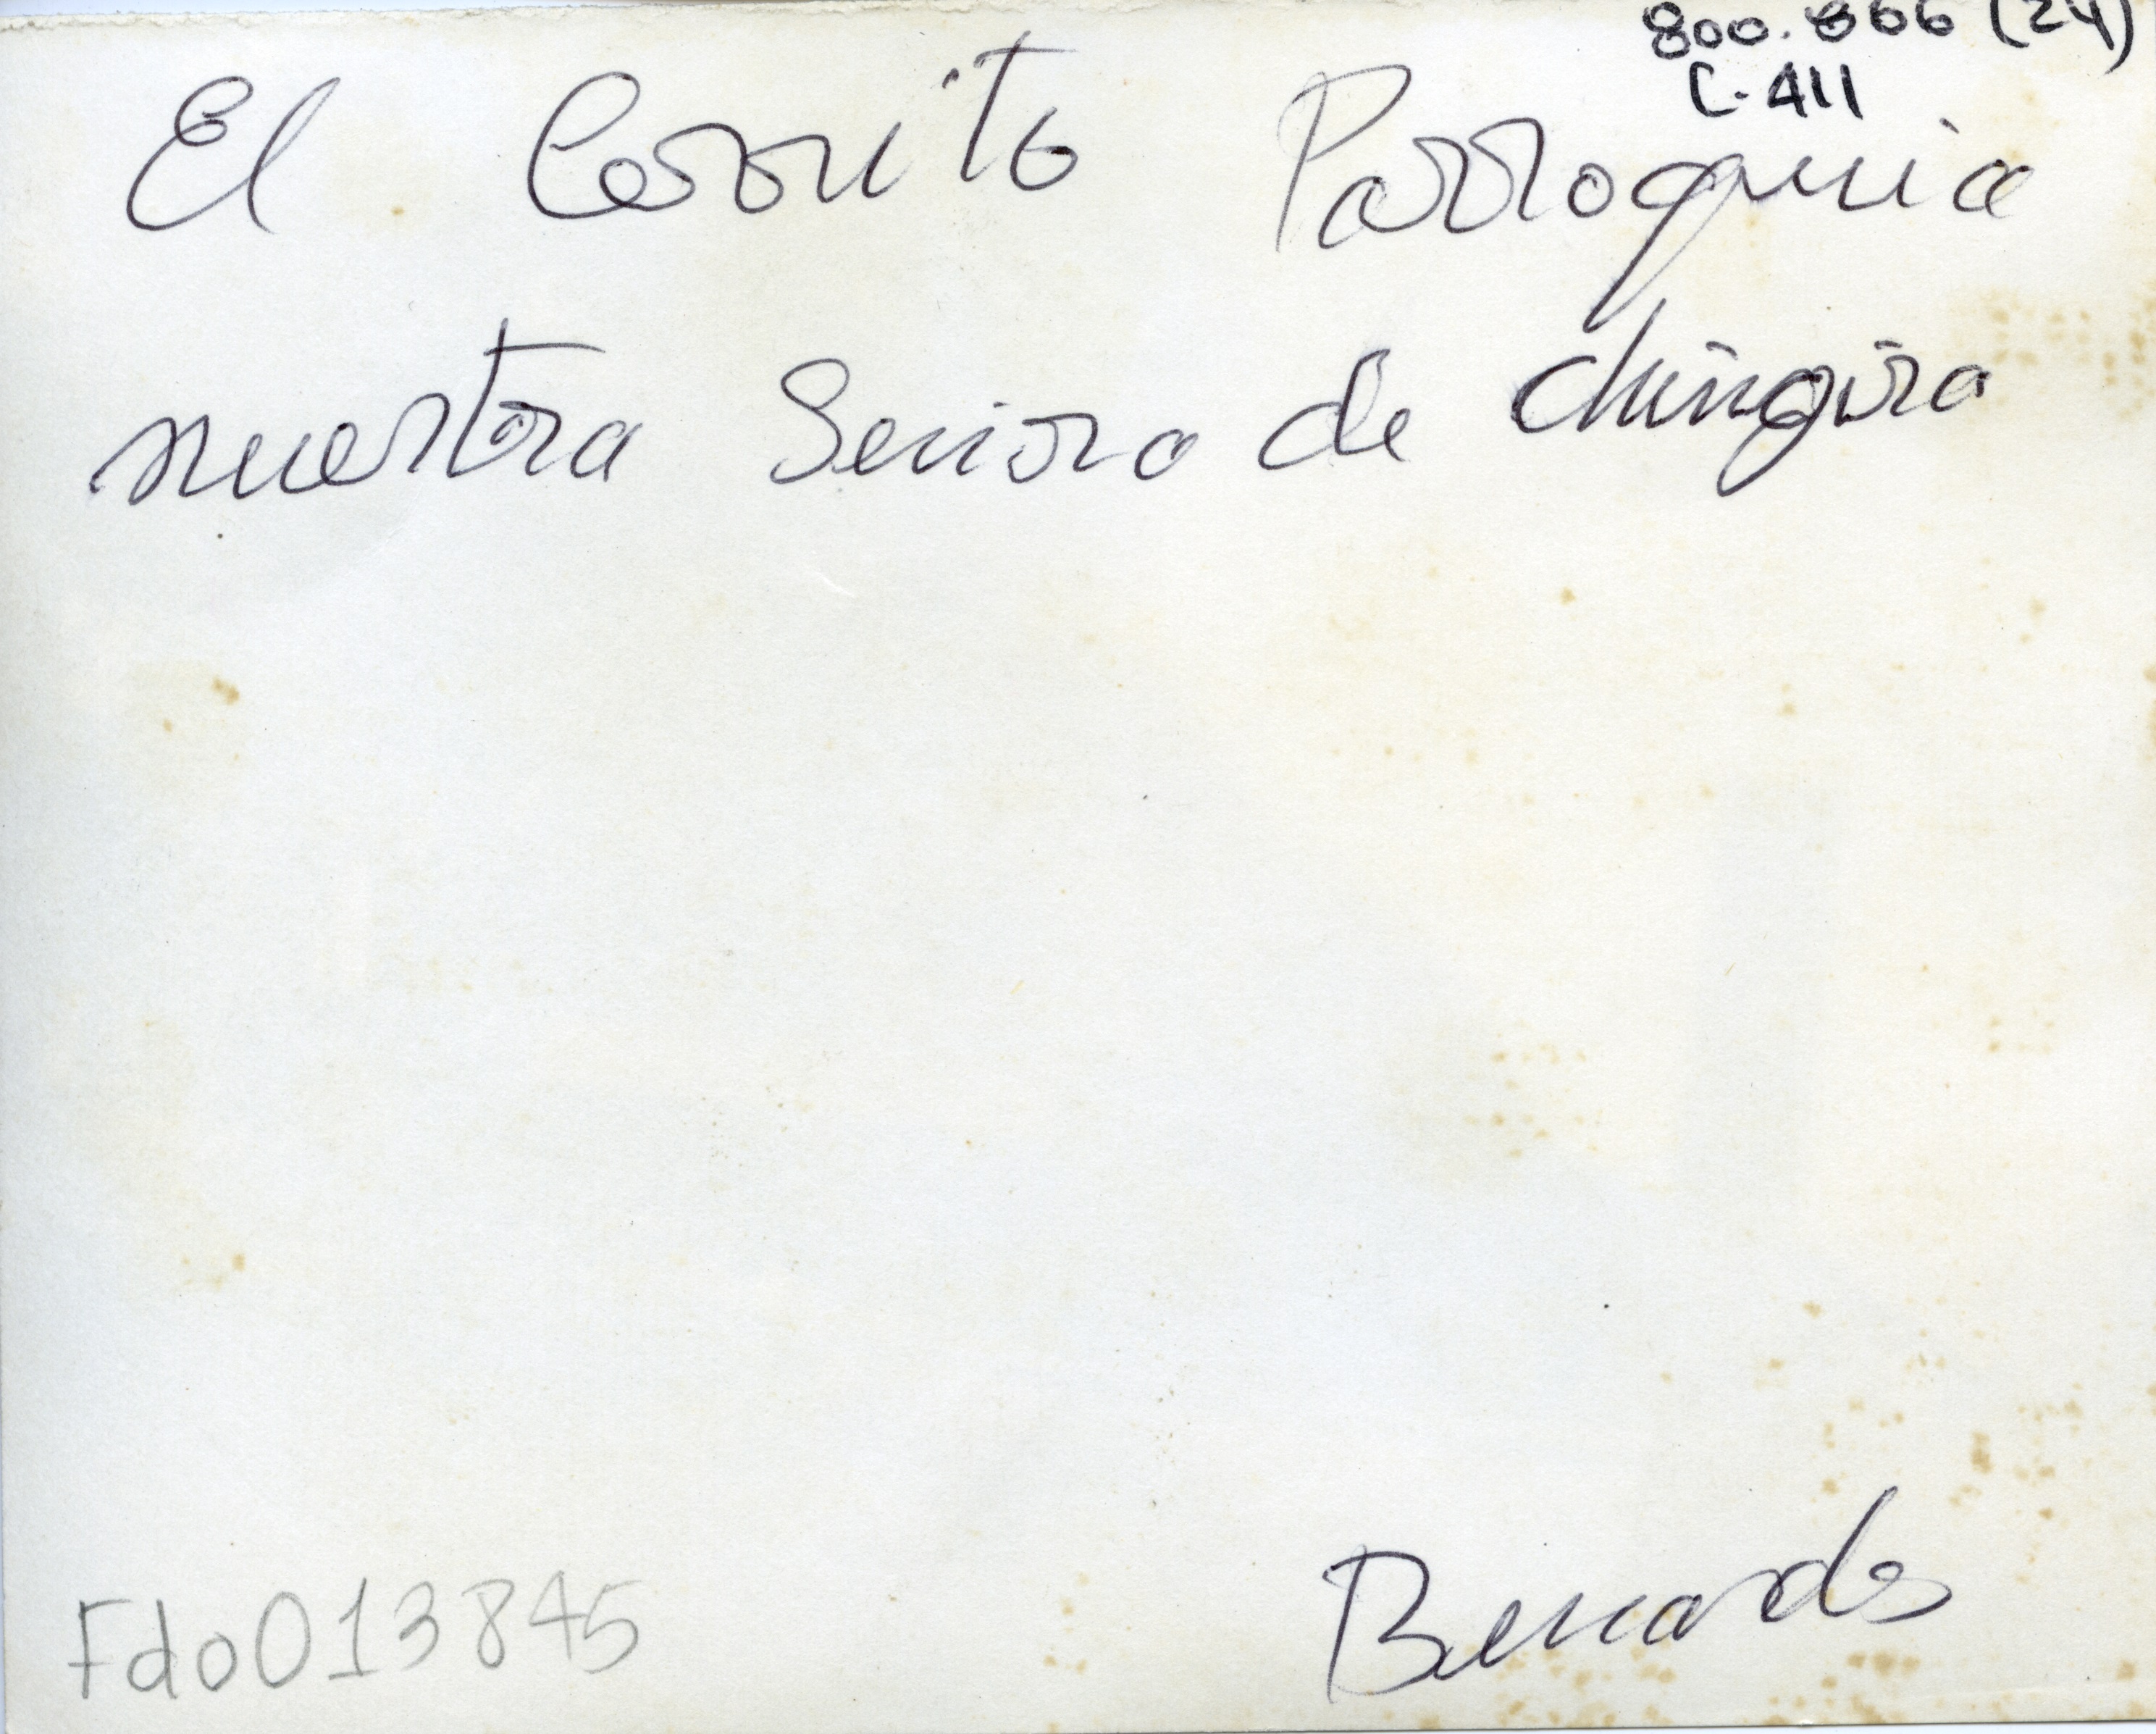 800.866 (24)
C-411
El Cerrito Parroquia
nuestra Seniora de Chinqira
Fdo013845
Bernardo